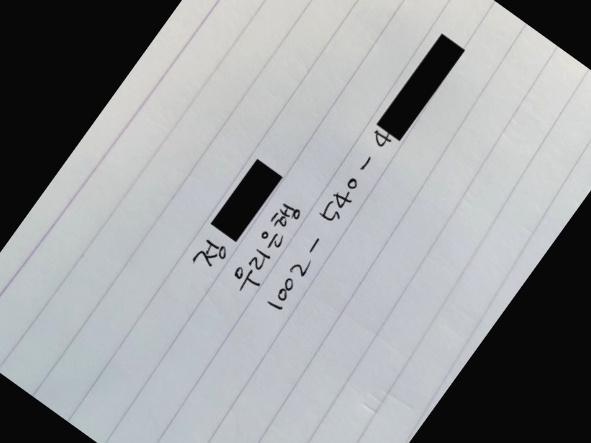 정
우리은행
1002-540-4